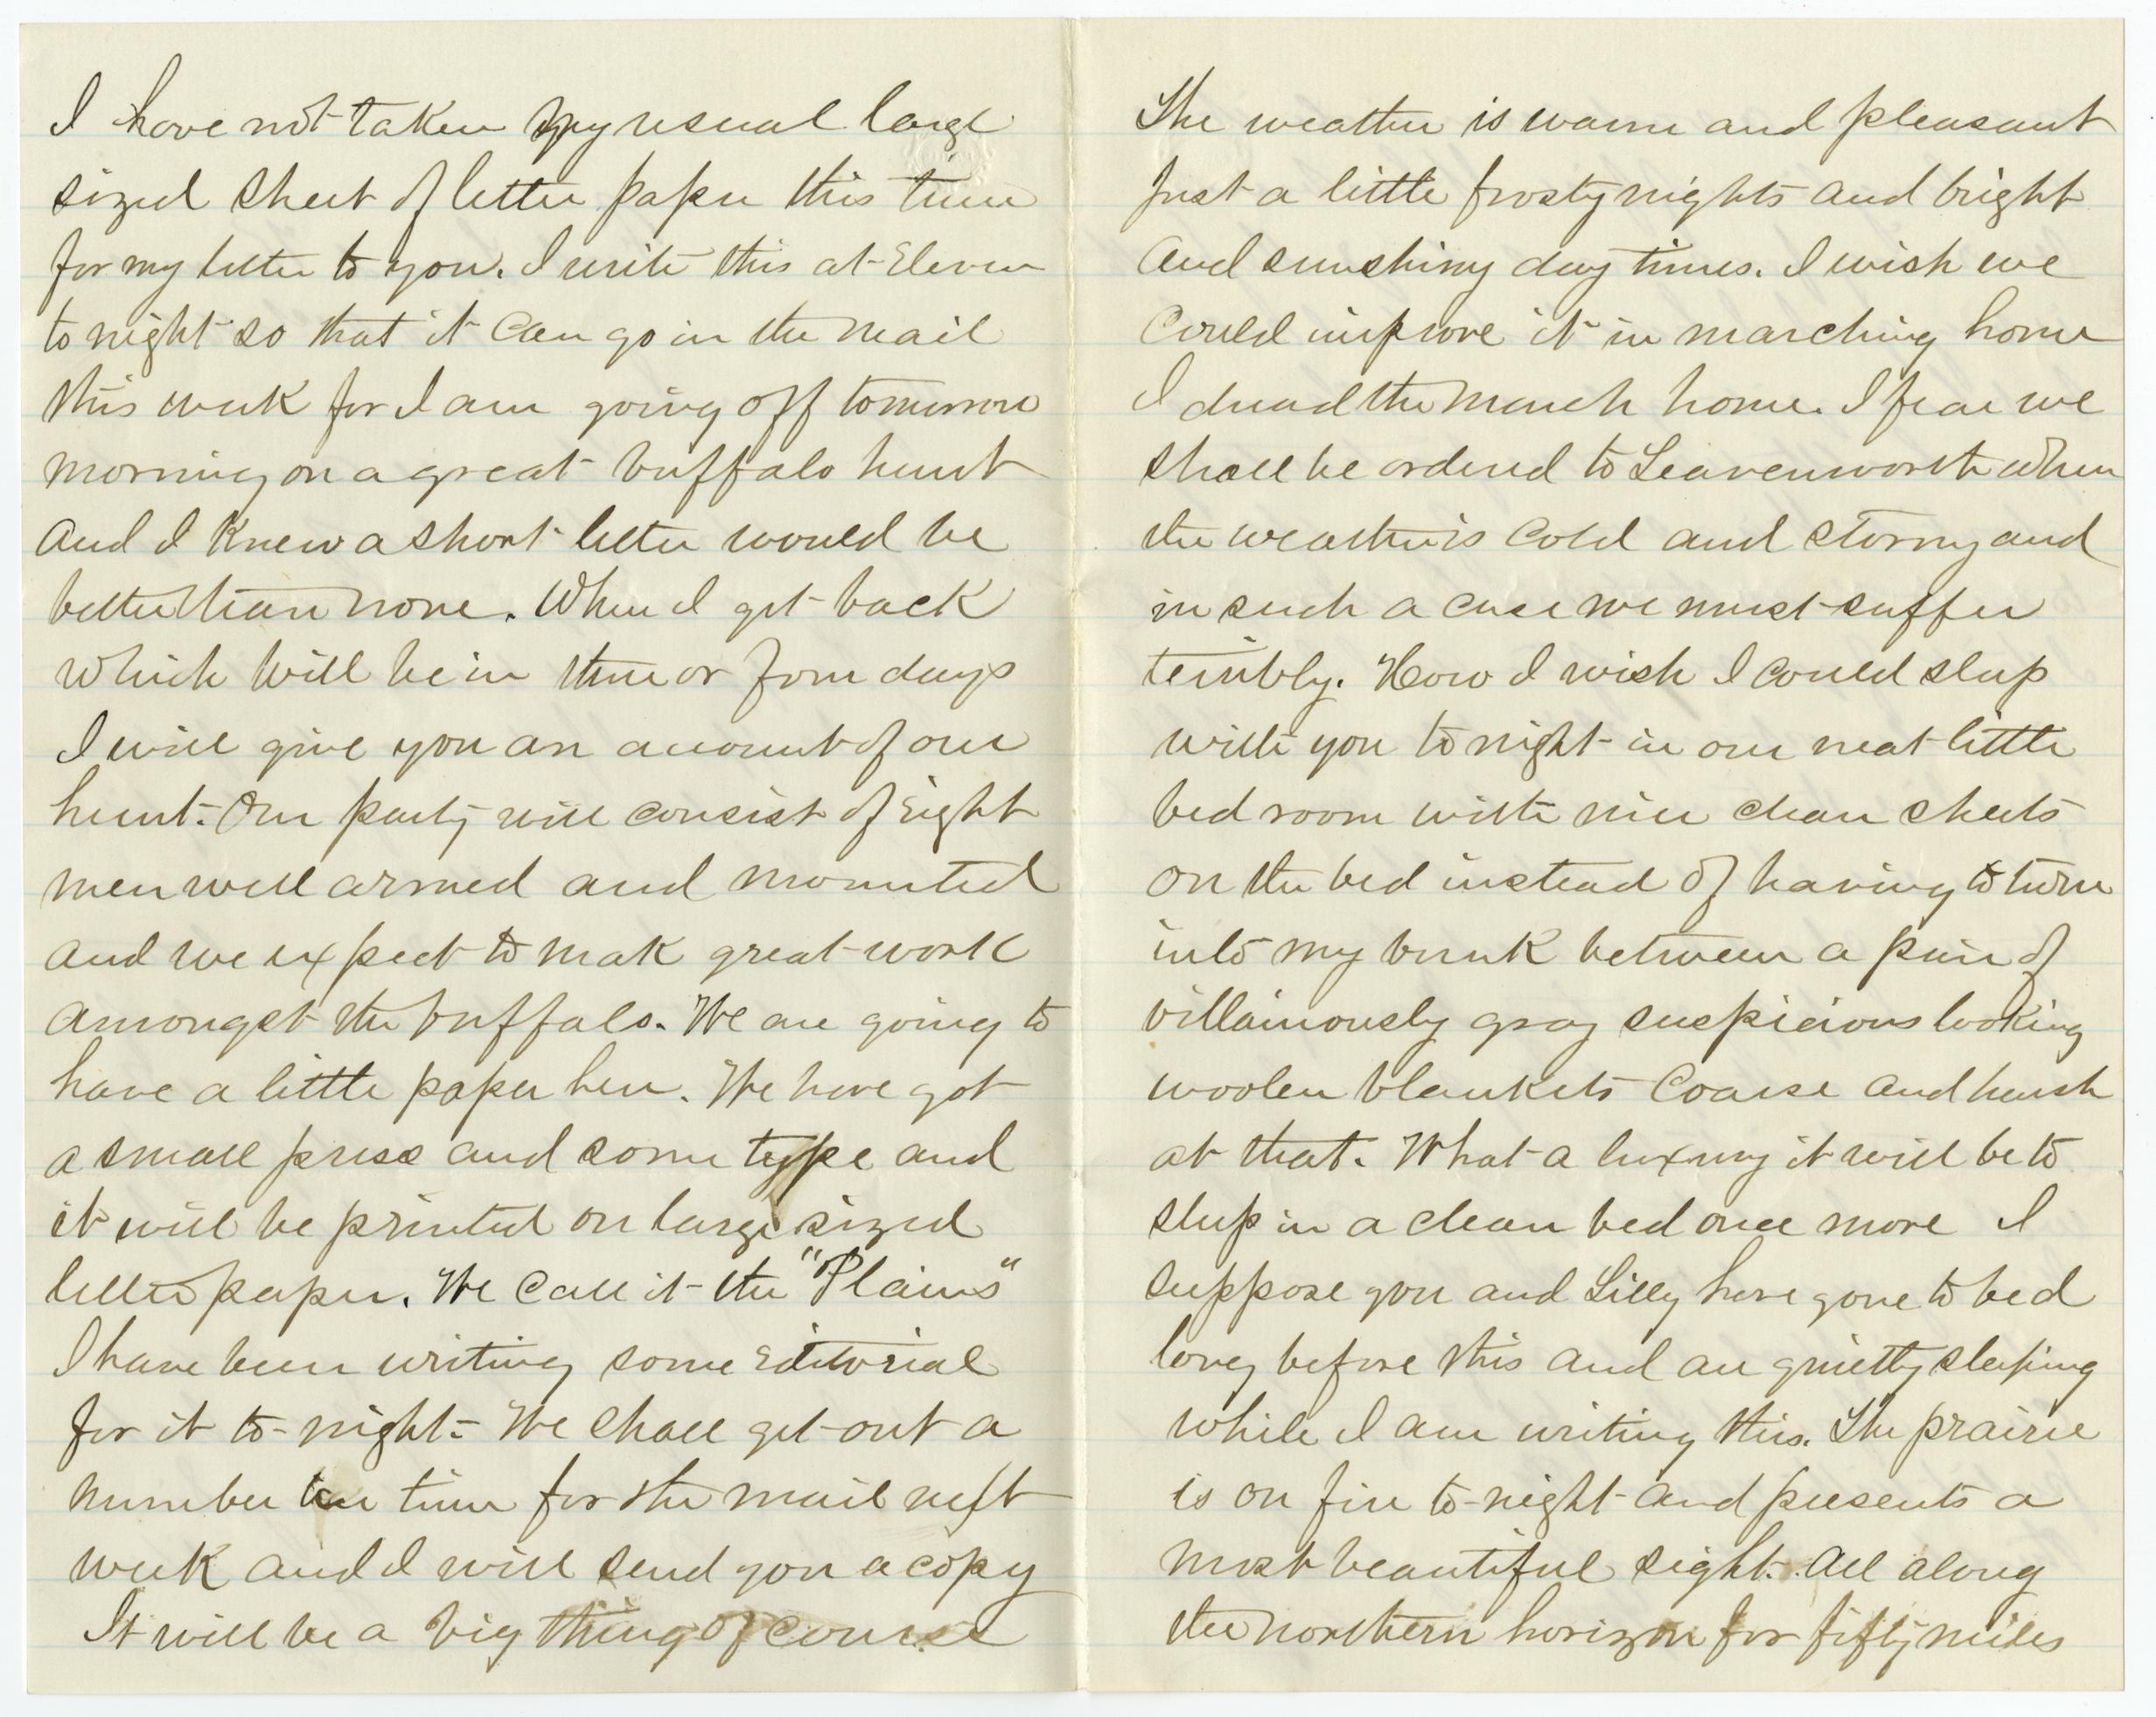 I have not taken my usual large
sized sheet of letter paper this time
for my letter to you. I write this at Eleven
to night so that it can go in the mail
this week for I am going off tomorrow
morning on a great buffalo hunt
and I knew a short letter would be
better than none. When I get back
which will be in three or four days
I will give you an account of our
hunt. Our party will consist of Eight
men well armed and mounted
and we expect to mak great work
amongst the buffalo. We are going to
have a little paper here. We have got
a small press and some type and
it will be printed on large sized
letter paper. We call it the "Plains"
I have been writing some Editorial
for it to-night. We shall get out a
number in time for the mail next
week and I will send you a copy
It will be a big thing of course
The weather is warm and pleasant
Just a little frosty nights and bright
and sunshiny day times. I wish we
could improve it in marching home
I dread the march home. I fear we
shall be ordered to Leavenworth when
the weather is cold and stormy and
in such a case we must suffer
terribly. How I wish I could sleep
with you to night in our neat little
bed room with nice clean sheets
on the bed instead of having to turn
into my bunk between a pair of
villainously gray suspicious looking
woolen blankets coarse and harsh
at that. What a luxury it will be to
sleep in a clean bed once more I
suppose you and Lilly have gone to bed
long before this and are quietly sleeping
while I am writing this. The prairie
is on fire to-night and presents a
most beautiful sight. All along
the northern horizon for fifty miles